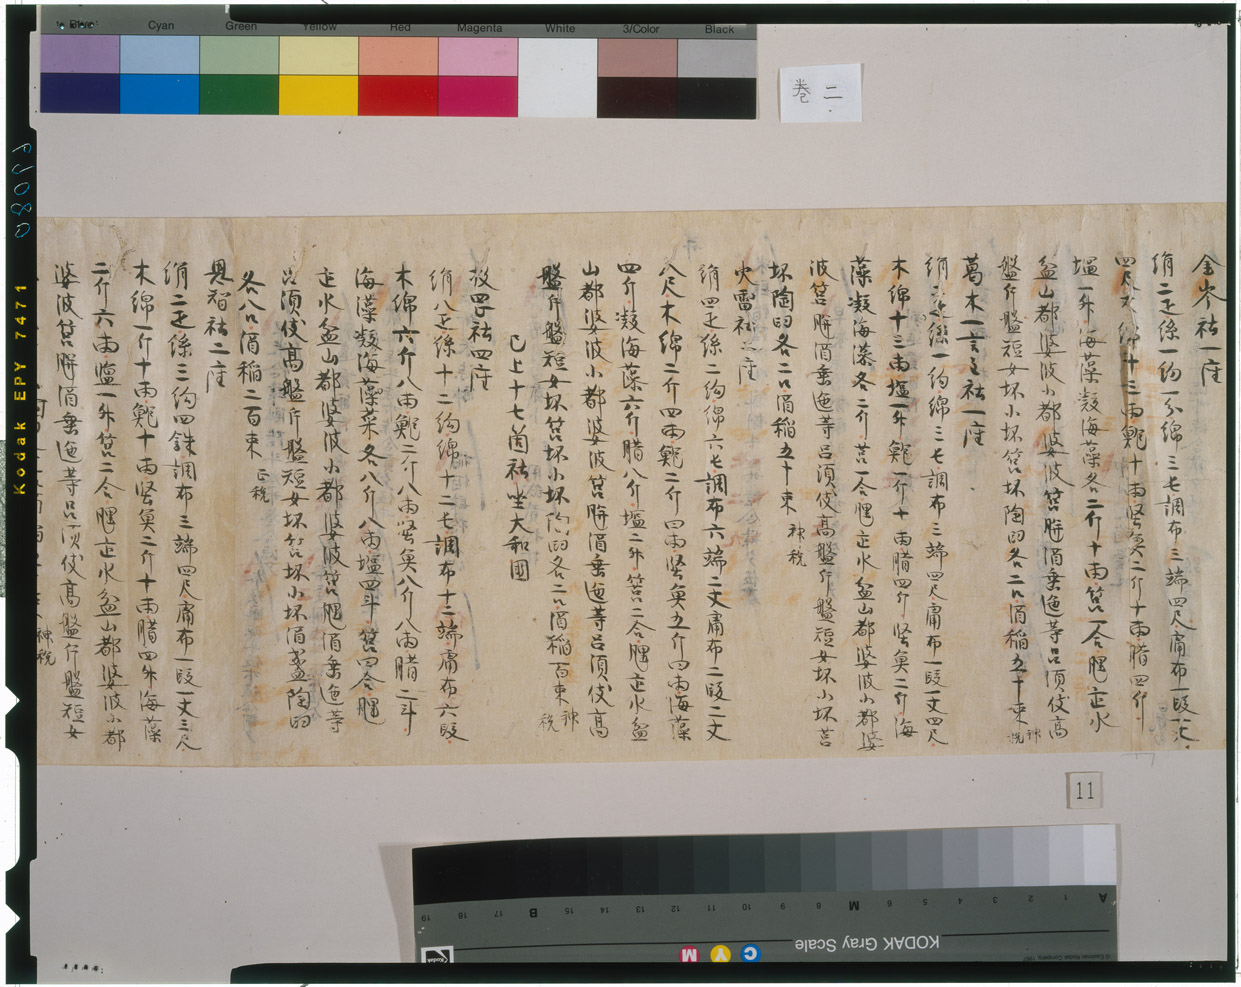 Cyan
Green
Yellow
Red
Magenta
White
3/Color
Black
巻二
金岑社一座
絹二疋絲一絇一分綿三屯調布三端四尺庸布一段一丈
四尺木綿十三兩鰒十兩堅魚二斤十兩腊四斤
塩一升海藻凝海藻各二斤十兩筥一合𤭖疋水
盆山都婆波小都婆波筥瓶酒垂匜等呂須伎高
盤片盤短女坏小坏筥坏陶臼各二口酒稲五十束神税
葛木一言主社一座
絹二疋絲一絇綿三屯調布三端四尺庸布一段一丈四尺
木綿十三兩塩一升鰒一斤十兩腊四斤堅魚二斤海
藻凝海藻各二斤筥一合𤭖疋水盆山都婆波小都婆
波筥瓶酒垂匜等呂須伎高盤片盤短女坏小坏筥
坏陶臼各二口酒稲五十束神税
火雷社二座
絹四疋絲二絇綿六屯調布六端二丈庸布二段二丈
八尺木綿二斤四兩鰒二斤四兩堅魚五斤四兩海藻
四斤凝海藻六斤腊八斤塩二升筥二合𤭖疋水盆
山都婆波小都婆波筥瓶酒垂匜等呂須伎高
盤片盤短女坏筥坏小坏陶臼各二口酒稲百束神税
已上十七箇社坐大和國
枚岡社四座
絹八疋絲十二絇綿十二屯調布十二端庸布六段
木綿六斤八兩鰒二斤八兩堅魚八斤八兩腊二斗
海藻凝海藻菜各八斤八兩塩四斗筥四合𤭖
疋水盆山都婆波小都婆波筥瓶酒垂匜等
呂須伎高盤片盤短女坏筥坏小坏酒盞陶臼
各八口酒稲二百束正税
恩智社二座
絹二疋絲三絇四銖調布三端四尺庸布一段一丈三尺
木綿一斤十兩鰒十兩堅魚二斤十兩腊四升海藻
二斤六兩塩一升筥二合𤭖疋水盆山都婆波小都
婆波筥瓶酒垂匜等呂須伎高盤片盤短女
神税
11
KODAK Gray Scale
Kodak EPY 7471